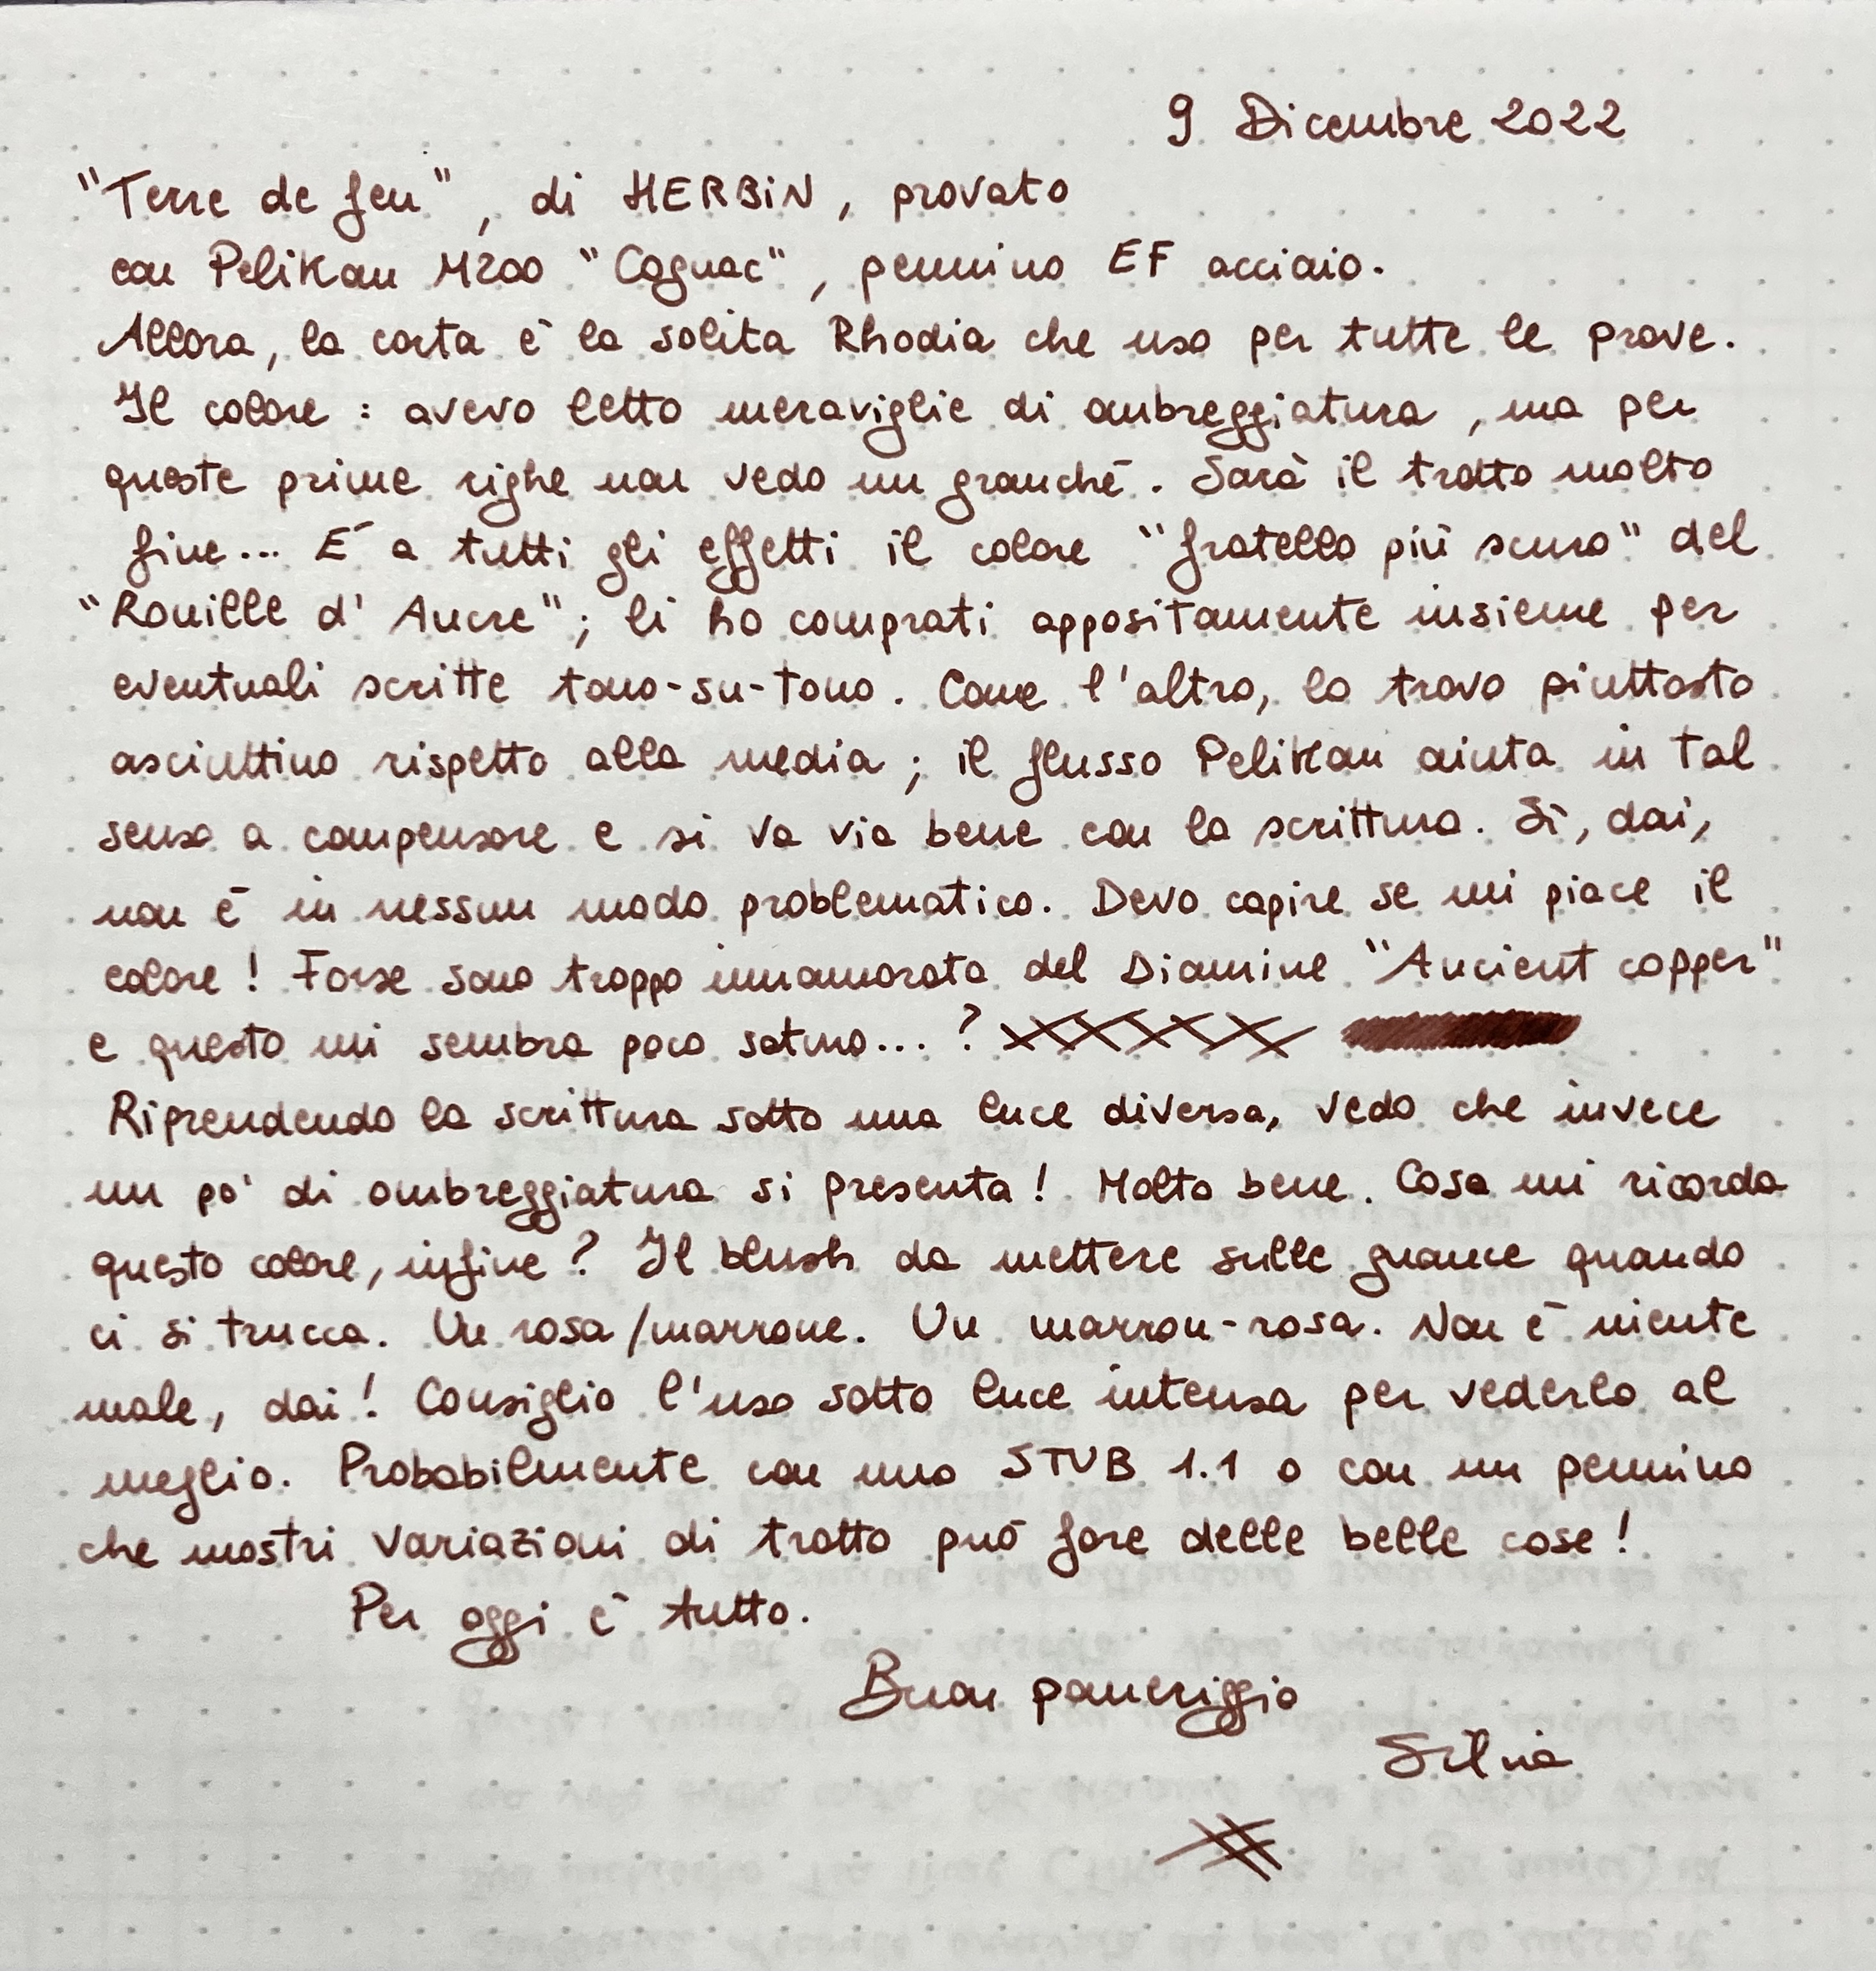 9 Dicembre 2022
"Terre de feu", di HERBiN, provato
con Pelikan M200 "Cognac", pennino EF acciaio.
Allora, la carta è la solita Rhodia che uso per tutte le prove.
Il colore: avevo letto meraviglie di ombreggiatura, ma per
queste prime righe non vedo un granché. Sarà il tratto molto
fine... E' a tutti gli effetti il colore "fratello più scuro" del
"Rouille d'Ancre"; li ho comprati appositamente insieme per
eventuali scritte tono-su-tono. Come l'altro, lo trovo piuttosto
asciuttino rispetto alla media; il flusso Pelikan aiuta in tal
senso a compensare e si va via bene con la scrittura. Sì, dai,
non è in nessun modo problematico. Devo capire se mi piace il
colore! Forse sono troppo innamorata del Diamine "Ancient copper"
e questo mi sembra poco saturo...?
Riprendendo la scrittura sotto una luce diversa, vedo che invece
un po' di ombreggiatura si presenta! Molto bene. Cosa mi ricorda
questo colore, infine? Il blush da mettere sulle guance quando
ci si trucca. Un rosa/marrone. Un marron-rosa. Non è niente
male, dai! Consiglio l'uso sotto luce intensa per vederlo al
meglio. Probabilmente con uno STUB 1.1 o con un pennino
che mostri variazioni di tratto può fare delle belle cose!
Per oggi è tutto.
Buon pomeriggio
Silvia